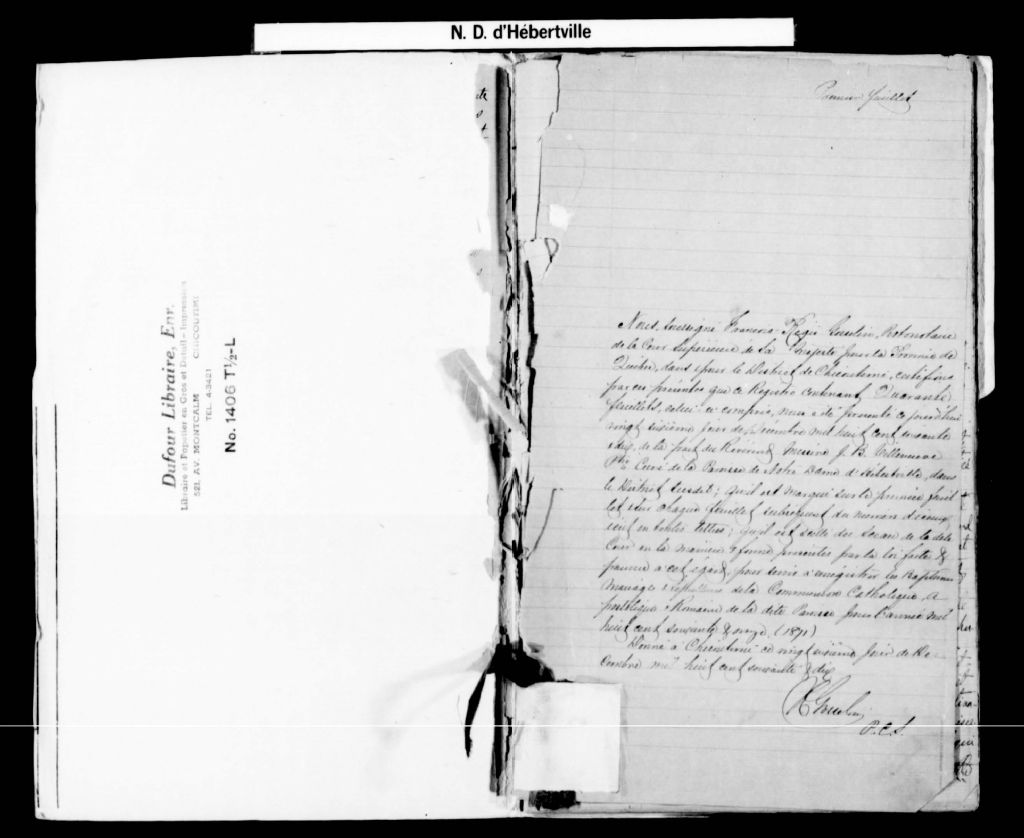 N. D. d'Hébertville
Dufour Libraire, Enr.
Libraire et Papetier en Gros et Détail - Impression
521, AV. MONTCALM CHICOUTIMI
TEL. 4-3421
No. 1406 T½-L
Premier feuillet
Nous, soussigné François Régis Gosselin, Protonotaire
de la Cour Supérieure de Sa Majesté pour la Province de
Québec, dans & pour le District de Chicoutimi, certifions
par ces présentes que ce Registre contenant Quarante
feuillets, celui-ci compris, nous a été présenté ce jourd'hui
vingt sixième jour de Décembre mil huit cent soixante
& dix, de la part du Révérend Messire J. B. Villeneuve
Ptre Curé de la Paroisse de Notre Dame d'Hébertville, dans
le District susdit; qu'il est marqué sur le premier feuil
let & sur chaque feuillet subséquent du numéro d'icelui
écrit en toutes lettres; qu'il est scellé du sceau de la dite
Cour en la manière & forme prescrites par la loi faite &
pourvue à cet égard, pour servir à enregistrer les Baptêmes
Mariages & Sépultures de la Communion Catholique, A
postolique & Romaine de la dite Paroisse pour l'année mil
huit cent soixante & onze. (1871)
Donné à Chicoutimi ce vingt sixième jour de Dé-
cembre mil huit cent soixante & dix
P.C.S.